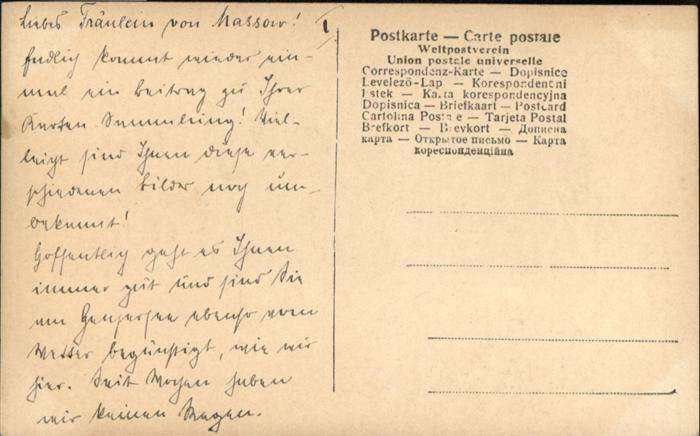 Liebes Fräulein von Massow!
Endlich kommt wieder ein-
mal ein Beitrag zu Ihrer
Karten Sammlung! Viel-
leigt sind Ihnen diese ver-
schiedenen Bilder noch un-
bekannt!
Hoffentlich geht es Ihnen
immer gut und sind Sie
am Genfersee ebenso vom
Wetter begünstigt, wie wir
hier. Seit Wochen haben
wir keinen Regen.
Postkarte — Carte postale
Weltpostverein
Union postale universelle
Correspondenz-Karte — Dopisnice
Levelező-Lap — Korespondentni
listek — Karta korespondencyjna
Dopisnica — Briefkaart — Postcard
Cartolina Postale — Tarjeta Postal
Brefkort — Brevkort — Дописна
карта — Открытое письмо — Карта
кореспонденційна